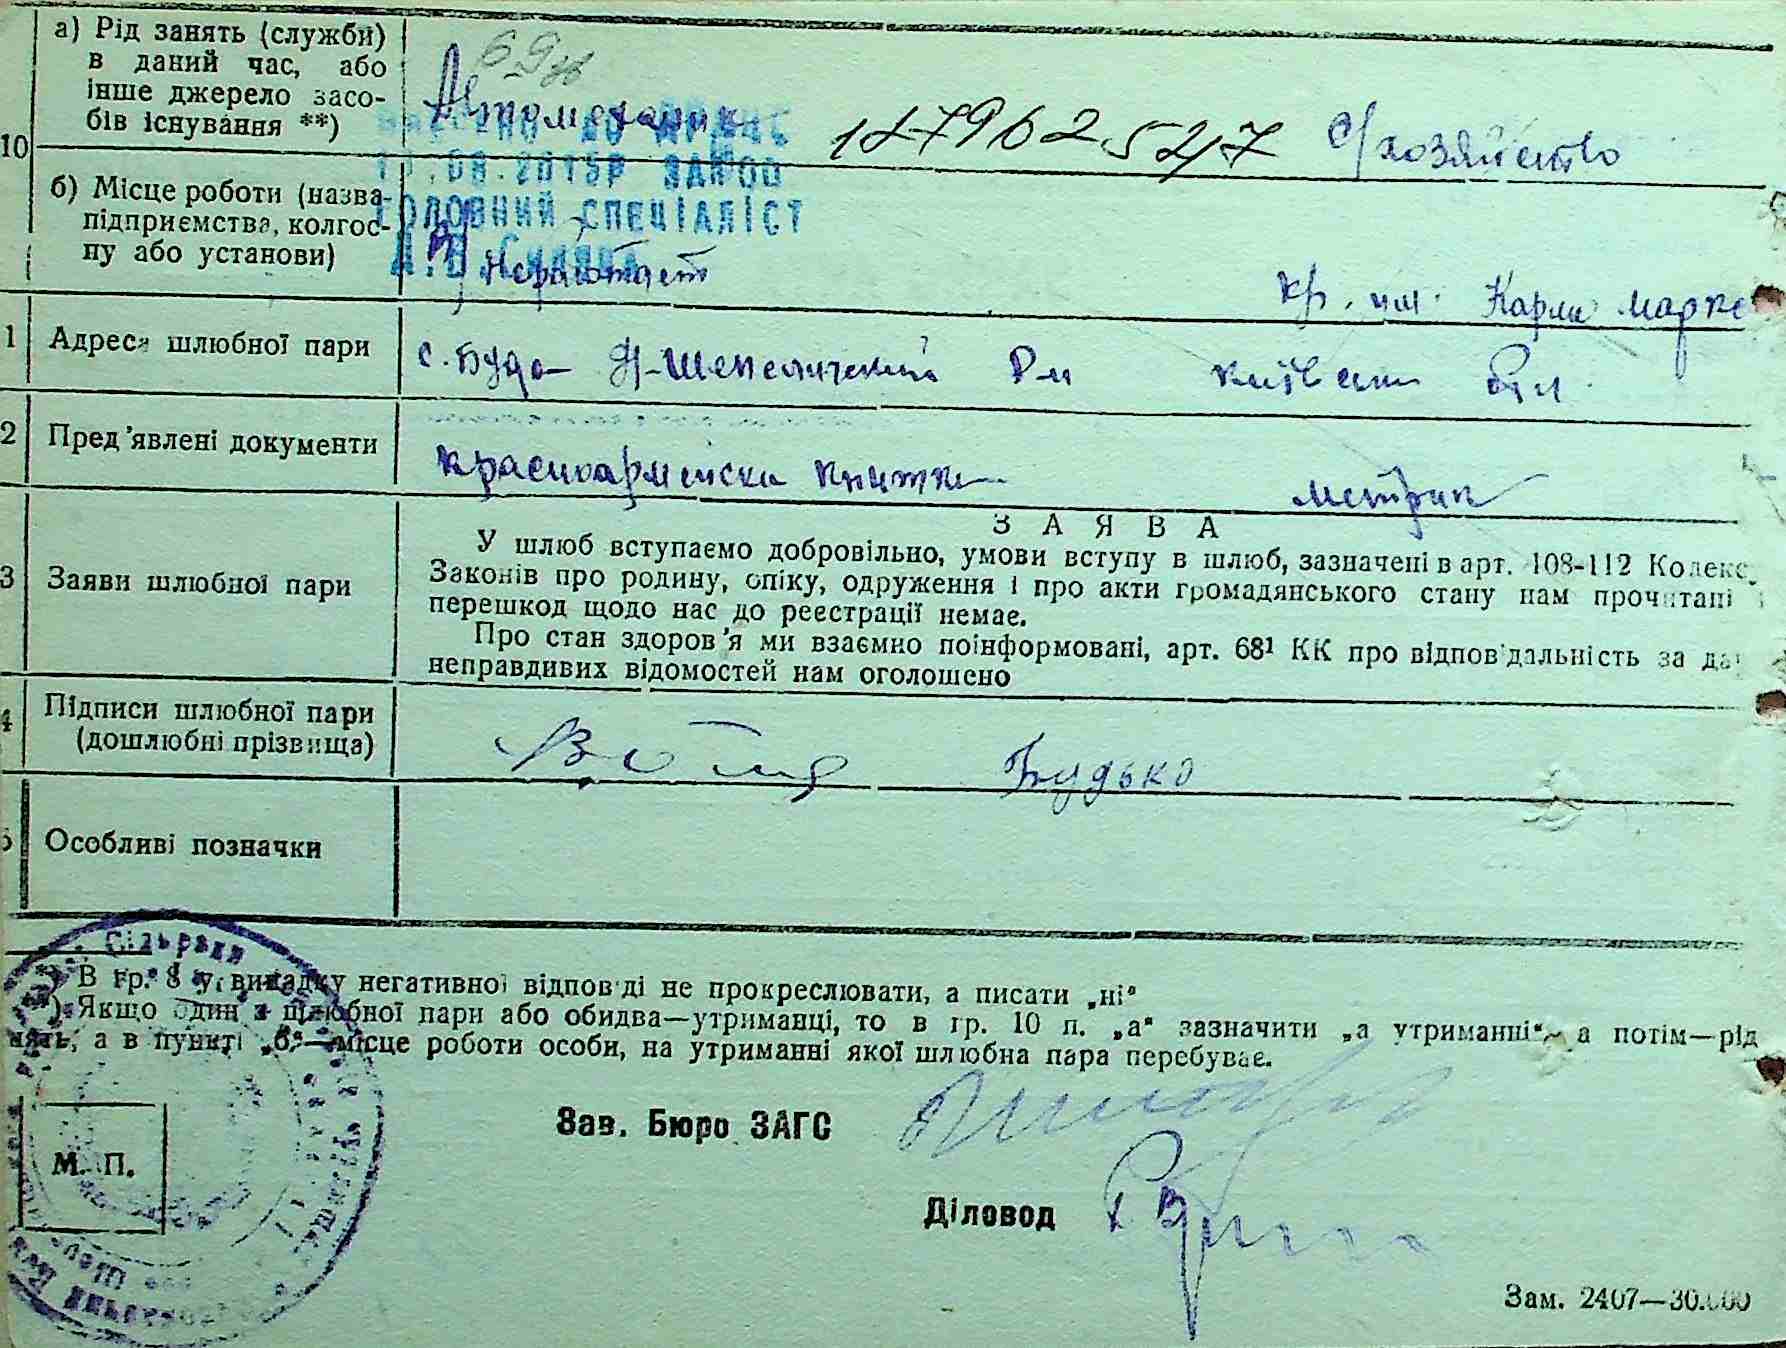 а) Рід занять (служби)
в даний час, або
інше джерело засо-
бів існування **)
Автомеханик
с/хозяйство
10
внесено до ДРАЦС
.08.2015р
головний спеціаліст
б) Місце роботи (назва
підприємства, колгос-
пу або установи)
Не работает
кр. им. Карла Маркс
1 Адреса шлюбної пари
с. Буда Н-Шепелический Р-н Київськ обл.
2 Пред'явлені документи
Красноармейска книжка метрик
З А Я В А
3 Заяви шлюбної пари
У шлюб вступаємо добровільно, умови вступу в шлюб, зазначені в арт. 108-112 Кодекс
Законів про родину, опіку, одруження і про акти громадянського стану нам прочитані і
перешкод щодо нас до реєстрації немає.
Про стан здоров'я ми взаємно поінформовані, арт. 68¹ КК про відповідальність за да
неправдивих відомостей нам оголошено
4 Підписи шлюбної пари
(дошлюбні прізвища)
Будько
5 Особливі позначки
Сільради
*) В гр. 8 у випадку негативної відповіді не прокреслювати, а писати „ні“
**) Якщо один з шлюбної пари або обидва—утриманці, то в гр. 10 п. „а“ зазначити „а утриманні“, а потім—рід
нять, а в пункті „б“—місце роботи особи, на утриманні якої шлюбна пара перебуває.
Зав. Бюро ЗАГС
М. П.
Діловод
Зам. 2407—30.000